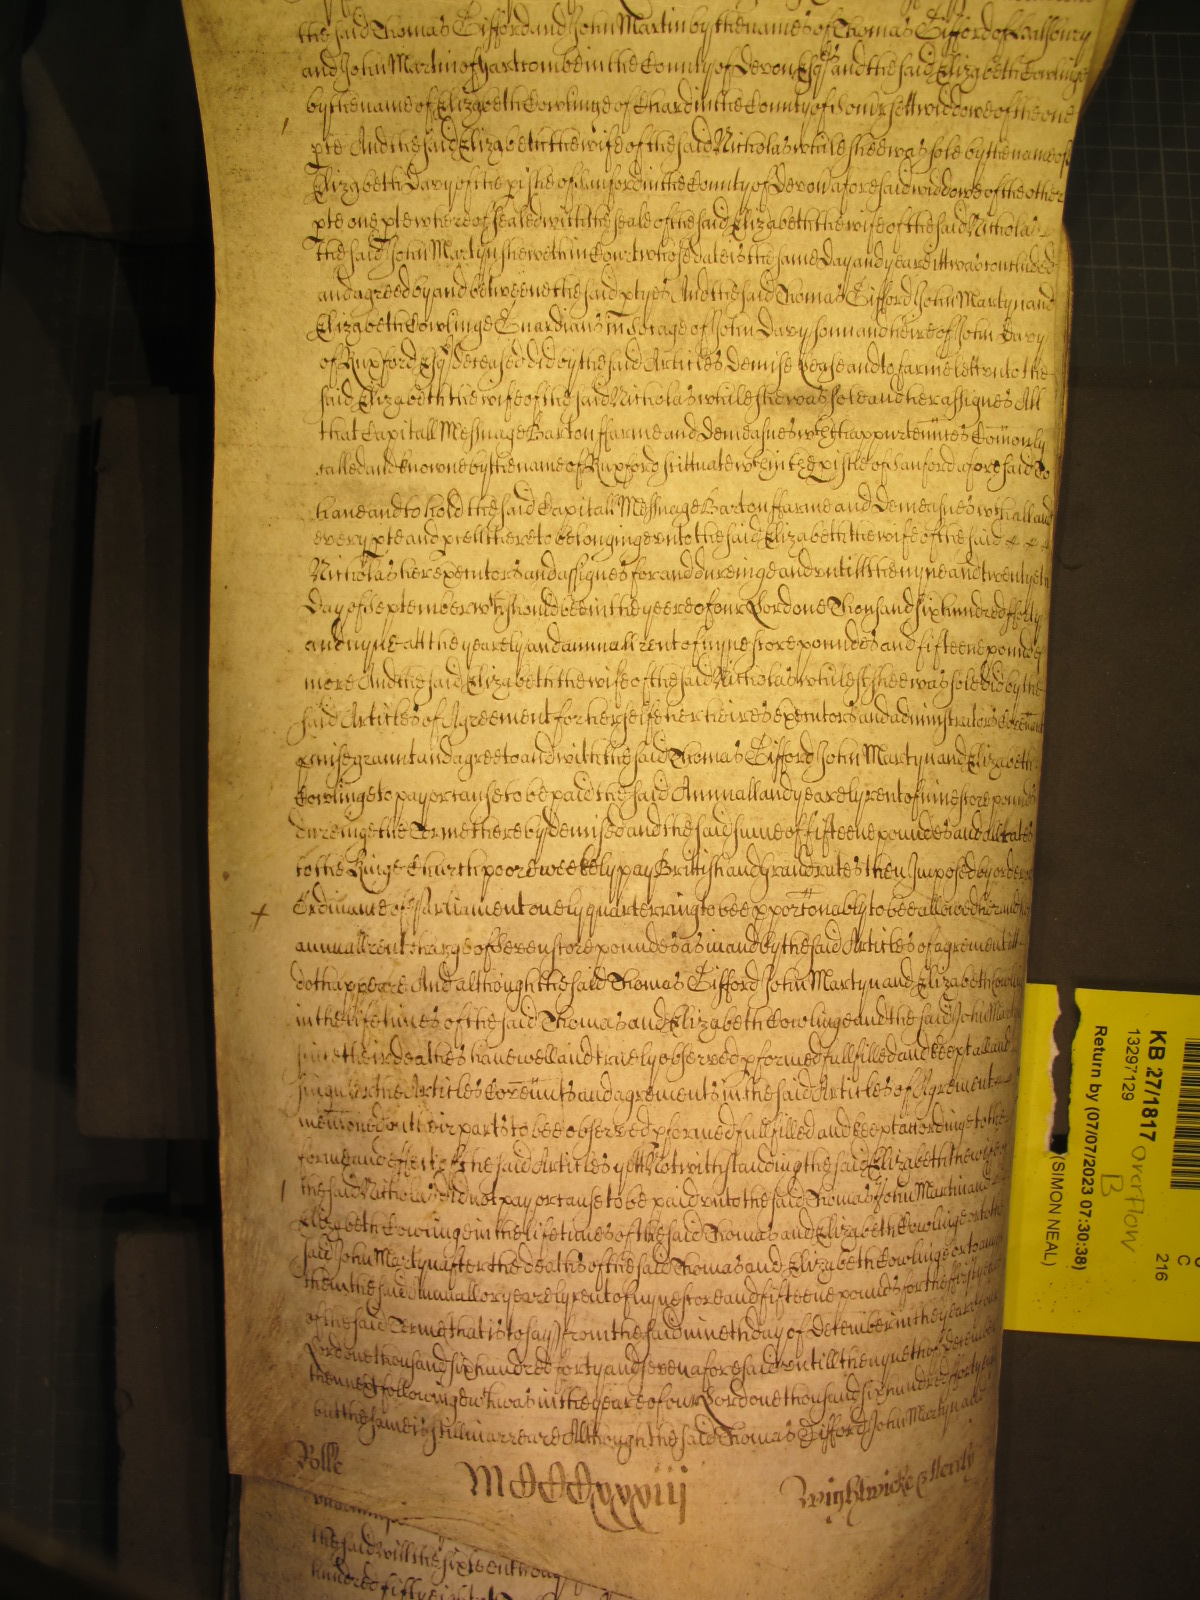 the said Thomas Gifford and John Martin by the names of Thomas Gifford of Halsbury
and John Martin of Hartcombe in the County of Devon Esqs and the said Elizabeth Cowlinge
by the name of Elizabeth Cowlinge of Chard in the County of Somersett widdowe of the one
pte And the said Elizabeth the wife of the said Nicholas while shee was sole by the name of
Elizabeth Davy of the pishe of Sanford in the County of Devon aforesaid widdowe of the other
pte one pte whereof sealed with the seale of the said Elizabeth the wife of the said Nicholas
the said John Martyn sheweth in Court whose date is the same day and yeare itt was concluded
and agreed by and betweene the said ptyes And the said Thomas Gifford John Martyn and
Elizabeth Cowlinge Guardians in of John Davy sonn and heire of John Davy
of Ruxford Esqr deceased did by the said Articles demise lease and to farme lett unto the
said Elizabeth the wife of the said Nicholas while shee was sole and her assignes All
that Capitall Messuage Barton ffarme and demeasnes wth thappurtennces Comonly
called and knowne by the name of Ruxford scittuate wthin the pishe of Sanford aforesaid To
have and to hold the said Capitall Messuage Barton ffarme and Demeasnes wth all and
every pte and pcell thereto belonginge unto the said Elizabeth the wife of the said
Nicholas her executors and assignes for and dureinge and untill the nyne and twentyeth
day of September wch should bee in the yeere of our Lord one Thousand six hundred fforty
and nyne att the yearely and annuall rent of nyne score poundes and fifteene poundes
more And the said Elizabeth the wife of the said Nicholas whilest shee was sole did by the
said Articles of Agreement for her selfe her heires executors and administrators covennt
pmise graunt and agree to and with the said Thomas Gifford John Martyn and Elizabeth
Cowlinge to pay or cause to be paid the said Annuall and yearely rent of nine score pounds
dureinge the Terme thereby demised and the said sume of fifteene poundes and all rates
to the Kinge Church poore weekely pay Brittish and grand rates then Imposed by order or
Ordinance of Parliament onely quarterring to bee pportonably to bee allowed
annuall rent charge of Seven score poundes as in and by the said Articles of agrement itt
doth appeare And although the said Thomas Gifford John Martyn and Elizabeth Cowlinge
in the life times of the said Thomas and Elizabeth Cowlinge and the said John Martyn
since their deathes have well and truely observed pformed fullfilled and keept all and
singuler the Articles Covennts and agrements in the said Articles of Agrement
menconed on their parts to bee observed pformed fullfilled and keept accordinge to the
forme and effect of the said Articles yett Notwithstanding the said Elizabeth the wife of
the said Nicholas did not pay or cause to be paid unto the said Thomas John Martin and
Elizabeth Cowlinge in the life times of the said Thomas and Elizabeth Cowlinge or to the
said John Martyn after the deaths of the said Thomas and Elizabeth Cowlinge or to any
them the said Annuall or yeerely rent of nyne score and fifteene pounds for the first yeare
of the said Terme that is to say from the said nineth day of December in the yeare of our
Lord one thousand six hundred forty and seven aforesaid untill the nyneth of December
then next followinge wch was in the yeare of our Lord one thousand six hundred forty
but the same is still in arreare Although the said Thomas Gifford John Martyn and
Rolle MCCCxxxviij Wightwicke & Henly
the said will the sixteenth
hundred fifty eight
KB 27/1817 Overflow
B
13297129
Return by (07/07/2023 07:30:38)
(SIMON NEAL)
C
216